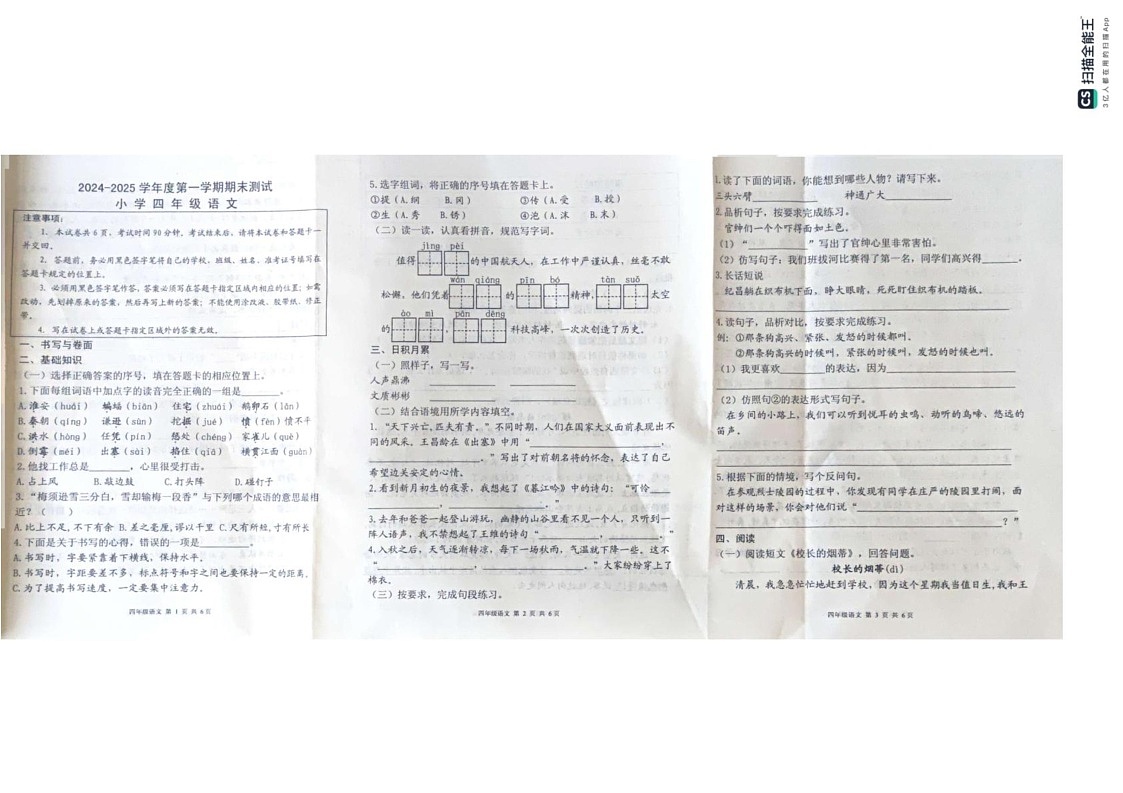 CS 扫描全能王
3亿人都在用的扫描App
2024-2025 学年度第一学期期末测试
小 学 四 年 级 语 文
注意事项:
1. 本试卷共 6 页,考试时间 90 分钟,考试结束后,请将本试卷和答题卡一
并交回。
2. 答题前,务必用黑色签字笔将自己的学校、班级、姓名、准考证号填写在
答题卡规定的位置上。
3. 必须用黑色签字笔作答,答案必须写在答题卡指定区域内相应的位置;如需
改动,先划掉原来的答案,然后再写上新的答案;不能使用涂改液、胶带纸、修正
带。
4. 写在试卷上或答题卡指定区域外的答案无效。
一、书写与卷面
二、基础知识
(一)选择正确答案的序号,填在答题卡的相应位置上。
1.下面每组词语中加点字的读音完全正确的一组是______。
A.淮安(huái) 蝙蝠(biān) 住宅(zhuái) 鹅卵石(lǎn)
B.秦朝(qíng) 谦逊(sùn) 挖掘(jué) 愤(fèn)愤不平
C.洪水(hòng) 任凭(pín) 惩处(chéng) 家雀儿(què)
D.倒霉(méi) 出塞(sài) 掐住(qiā) 横贯江面(guàn)
2.他找工作总是______,心里很受打击。
A.占上风 B.敲边鼓 C.打头阵 D.碰钉子
3.“梅须逊雪三分白,雪却输梅一段香”与下列哪个成语的意思最相
近?( )
A.比上不足,不下有余 B.差之毫厘,谬以千里 C.尺有所短,寸有所长
4.下面是关于书写的心得,错误的一项是________。
A.书写时,字要紧靠着下横线,保持水平。
B.书写时,字距要差不多,标点符号和字之间也要保持一定的距离。
C.为了提高书写速度,一定要集中注意力。
四年级语文 第 1 页 共 6页
5.选字组词,将正确的序号填在答题卡上。
①提(A.纲 B.冈) ③传(A.受 B.授)
②生(A.秀 B.锈) ④泡(A.沫 B.末)
(二)读一读,认真看拼音,规范写字词。
jìng pèi
值得 的中国航天人,在工作中严谨认真,丝毫不放
wán qiáng pīn bó tàn suǒ
松懈,他们凭着 的 精神, 太空
ào mì pān dēng
的 , 科技高峰,一次次创造了历史。
三、日积月累
(一)照样子,写一写。
人声鼎沸 __________
文质彬彬 __________
(二)结合语境用所学内容填空。
1.“天下兴亡,匹夫有责。”不同时期,人们在国家大义面前表现出不
同的风采。王昌龄在《出塞》中用“____________________,
____________________。”写出了对前朝名将的怀念,表达了自己
希望边关安定的心情。
2.看到新月初生的夜景,我想起了《暮江吟》中的诗句:“可怜____
____________,____________________。”
3.去年和爸爸一起登山游玩,幽静的山谷里看不见一个人,只听到一
阵人语声,我不禁想起了王维的诗句“__________,__________。”
4.入秋之后,天气逐渐转凉,每下一场秋雨,气温就下降一些。这不
“__________,__________。”大家纷纷穿上了
棉衣。
(三)按要求,完成句段练习。
四年级语文 第 2 页 共 6页
1.读了下面的词语,你能想到哪些人物?请写下来。
三头六臂__________ 神通广大__________
2.品析句子,按要求完成练习。
官绅们一个个吓得面如土色。
(1)“__________”写出了官绅心里非常害怕。
(2)仿写句子:我们班拔河比赛得了第一名,同学们高兴得______。
3.长话短说
纪昌躺在织布机下面,睁大眼睛,死死盯住织布机的踏板。
____________________
4.读句子,品析对比,按要求完成练习。
例:①那条狗高兴、紧张、发怒的时候都叫。
②那条狗高兴的时候叫,紧张的时候叫,发怒的时候也叫。
(1)我更喜欢________的表达,因为____________________
____________________
(2)仿照句②的表达形式写句子。
在乡间的小路上,我们可以听到悦耳的虫鸣、动听的鸟啼、悠远的
笛声。
____________________
____________________
5.根据下面的情境,写个反问句。
在参观烈士陵园的过程中,你发现有同学在庄严的陵园里打闹,面
对这样的场景,你会对他们说“____________________
____________________?”
四、阅读
(一)阅读短文《校长的烟蒂》,回答问题。
校长的烟蒂(dì)
清晨,我急急忙忙地赶到学校,因为这个星期我当值日生,我和王
四年级语文 第 3 页 共 6页